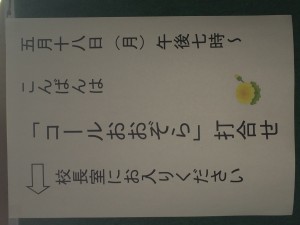 五月十八日（月）午後七時～
こんばんは
「コールおおぞら」打合せ
校長室にお入りください